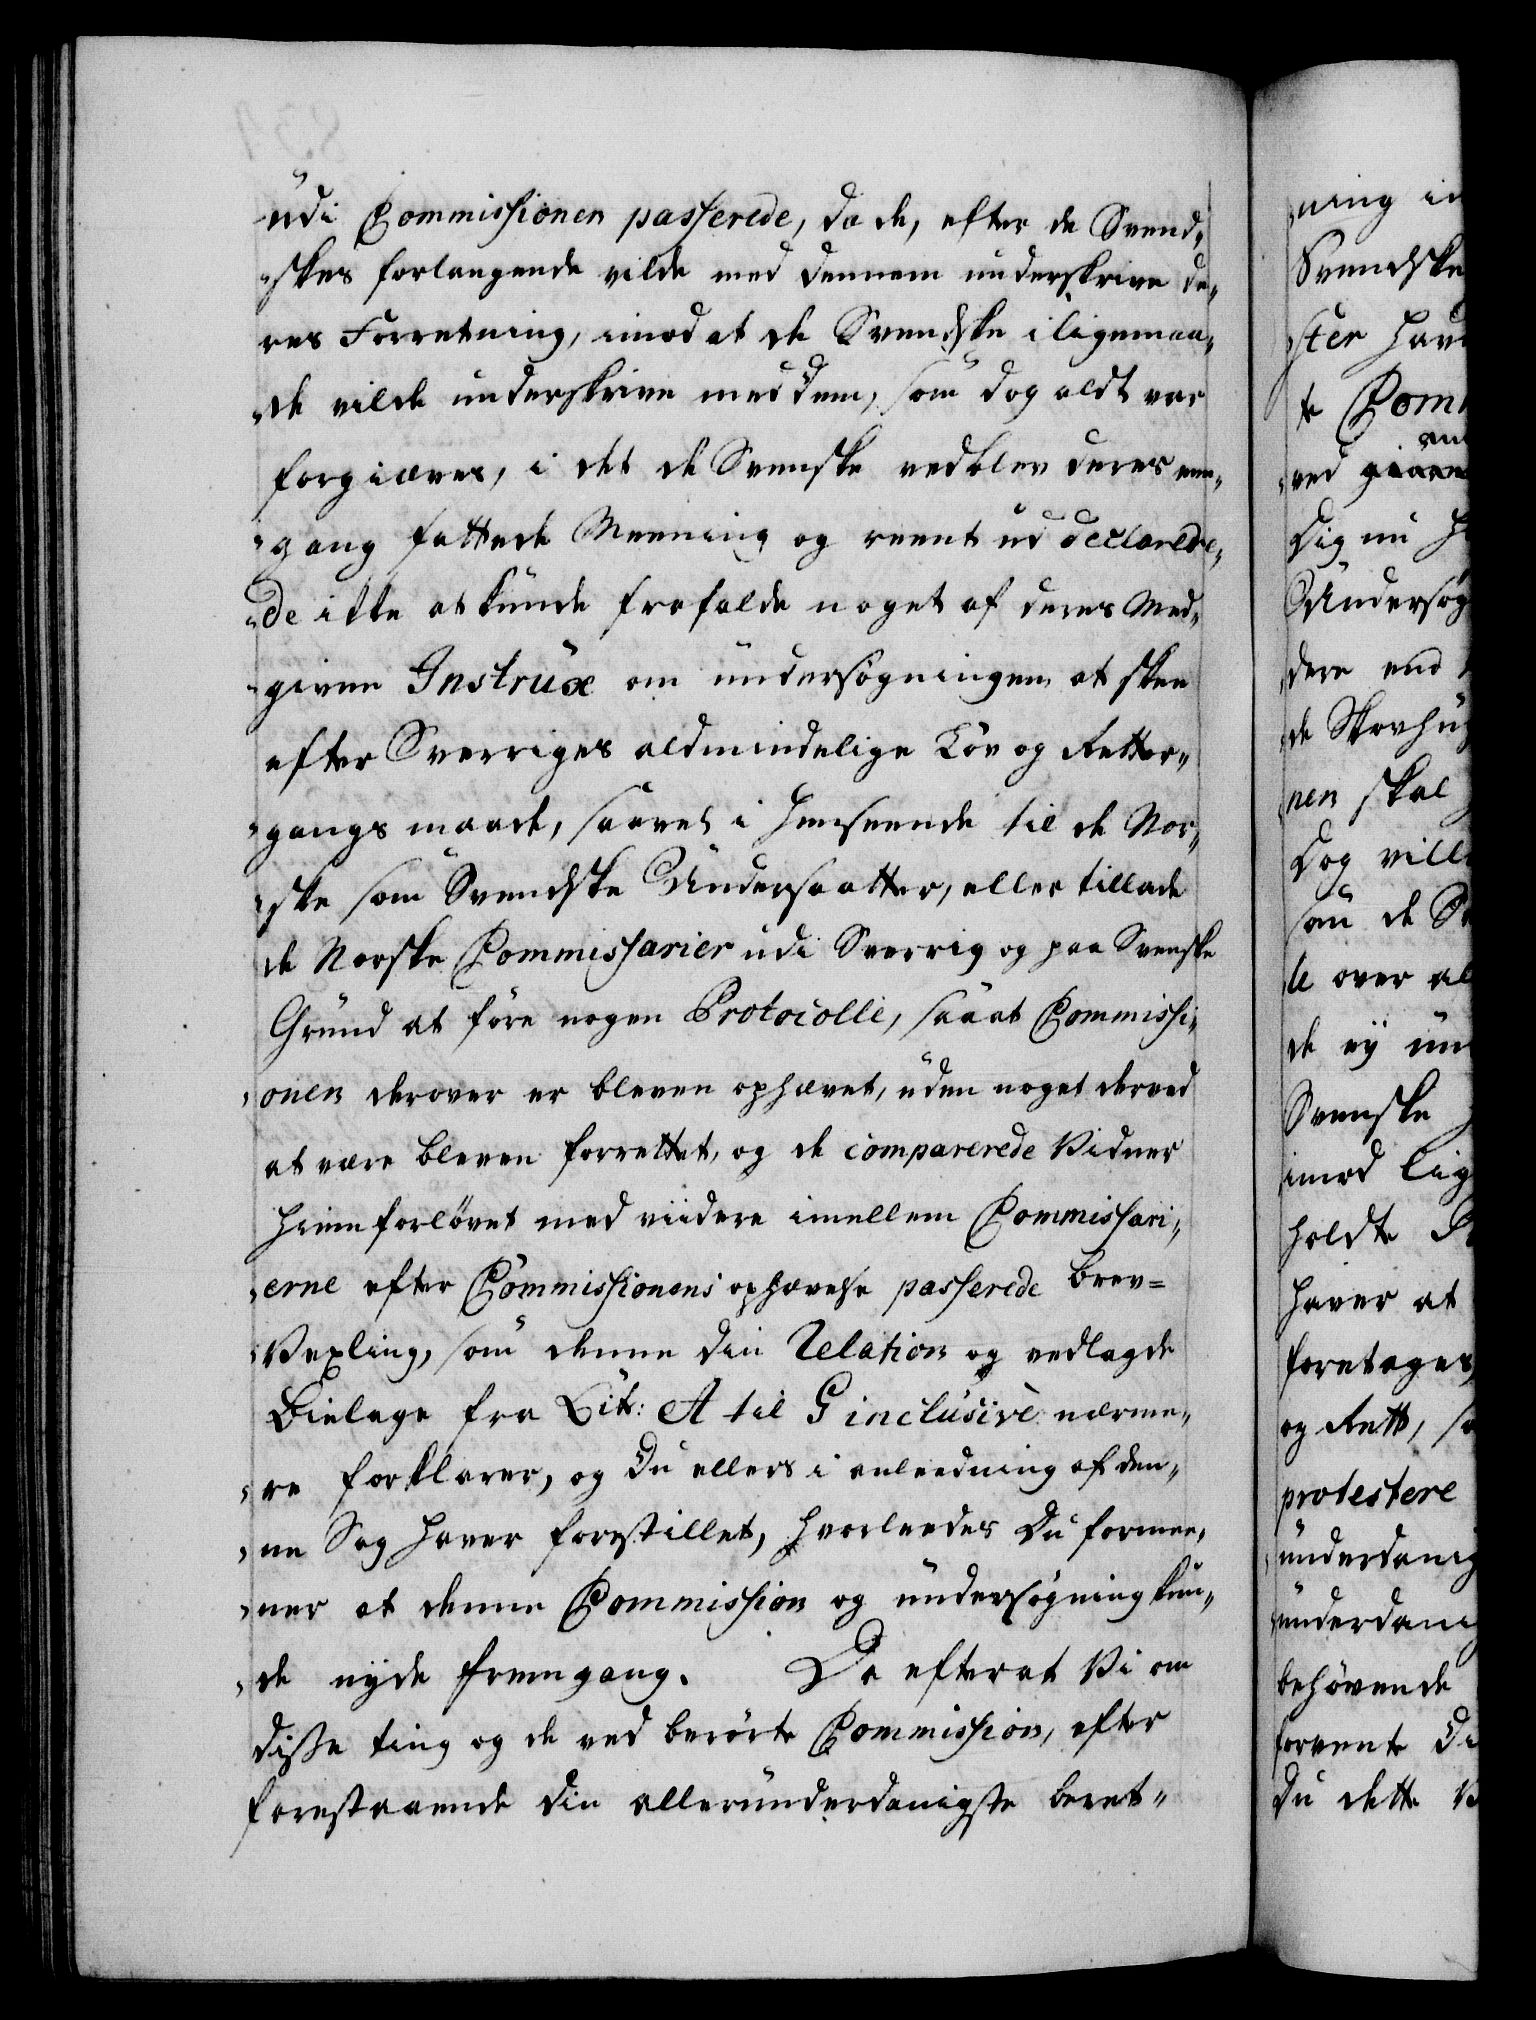 udi Commissionen passerede, da de, efter de Svend„
„skes forlangende vilde med dennem underskrive de„
res Forretning, imod at de Svendske i ligemaa„
„de vilde underskrive med dem, som dog aldt var
forgieves, i det de Svenske vedblev deres een„
„gang fattede Meening og reent ud declarere„
„de ikke at kunde frafalde noget af deres Med„
„given Instrux om undersøgningen at skee
efter Sverriges aldmindelige Lov og Retter„
„gangs maade, saavel i henseende til de Nor„
„ske som Svendske Undersaatter, eller tillade
de Norske Commissarier udi Sverrig og paa Svenske
Grund at føre nogen Protocolle, saa at Commissi„
„onen derover er bleven ophævet, uden noget derved
at være bleven forrettet, og de comparerede Vidner
hiemforlovet med viidere imellem Commissari„
„erne efter Commissionens ophævelse passerede brev=
Vexling, som denne din Relation og vedlagde
Bielage fra Lit: A til G inclusive nærme„
„re forklarer, og Du ellers i anleedning af den„
„ne Sag haver forestillet, hvorleedes Du formee„
„ner at denne Commission og undersøgning kun„
„de nyde fremgang. Da efterat Vi om
disse ting og de ved berørte Commission, efter
forestaaende din allerunderdanigste beret„
ning i
Svendske
ster hav
te Com
ved
dig nu
Undersøg
dere end
de Skovhug
nen skal
dog vill
saa de
le over al
de ey un
Svenske
imod lig
holdte
haver at
foretages,
og Rett,
protestere
underdanig
underdanig
behøvende
forvente
Du dette